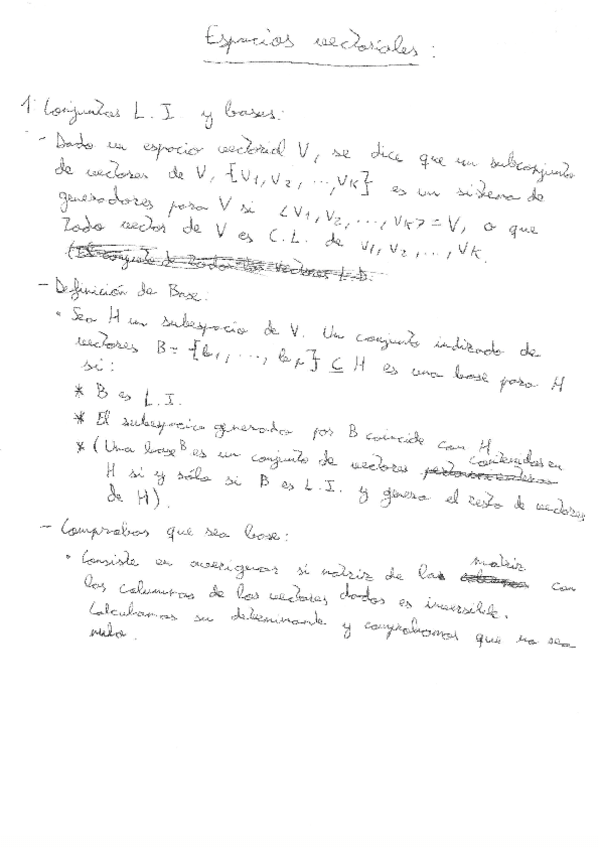 Espacios vectoriales:
1. Conjuntos L.I. y bases:
- Dado un espacio vectorial V, se dice que un subconjunto
de vectores de V, {V1, V2, ..., VK} es un sistema de
generadores para V si <V1, V2, ..., VK> = V, o que
todo vector de V es C.L. de V1, V2, ..., VK.
(El conjunto de todos los vectores L.D.
- Definición de Base:
• Sea H un subespacio de V. Un conjunto indizado de
vectores B = {b1, ..., bp} ⊆ H es una base para H
si:
* B es L.I.
* El subespacio generado por B coincide con H.
* (Una base B es un conjunto de vectores contenidos en
H si y sólo si B es L.I. y genera el resto de vectores
de H).
- Comprobar que sea base:
• Consiste en averiguar si matriz de la matriz con
las columnas de los vectores dados es inversible.
Calculamos su determinante y comprobamos que no sea
nulo.